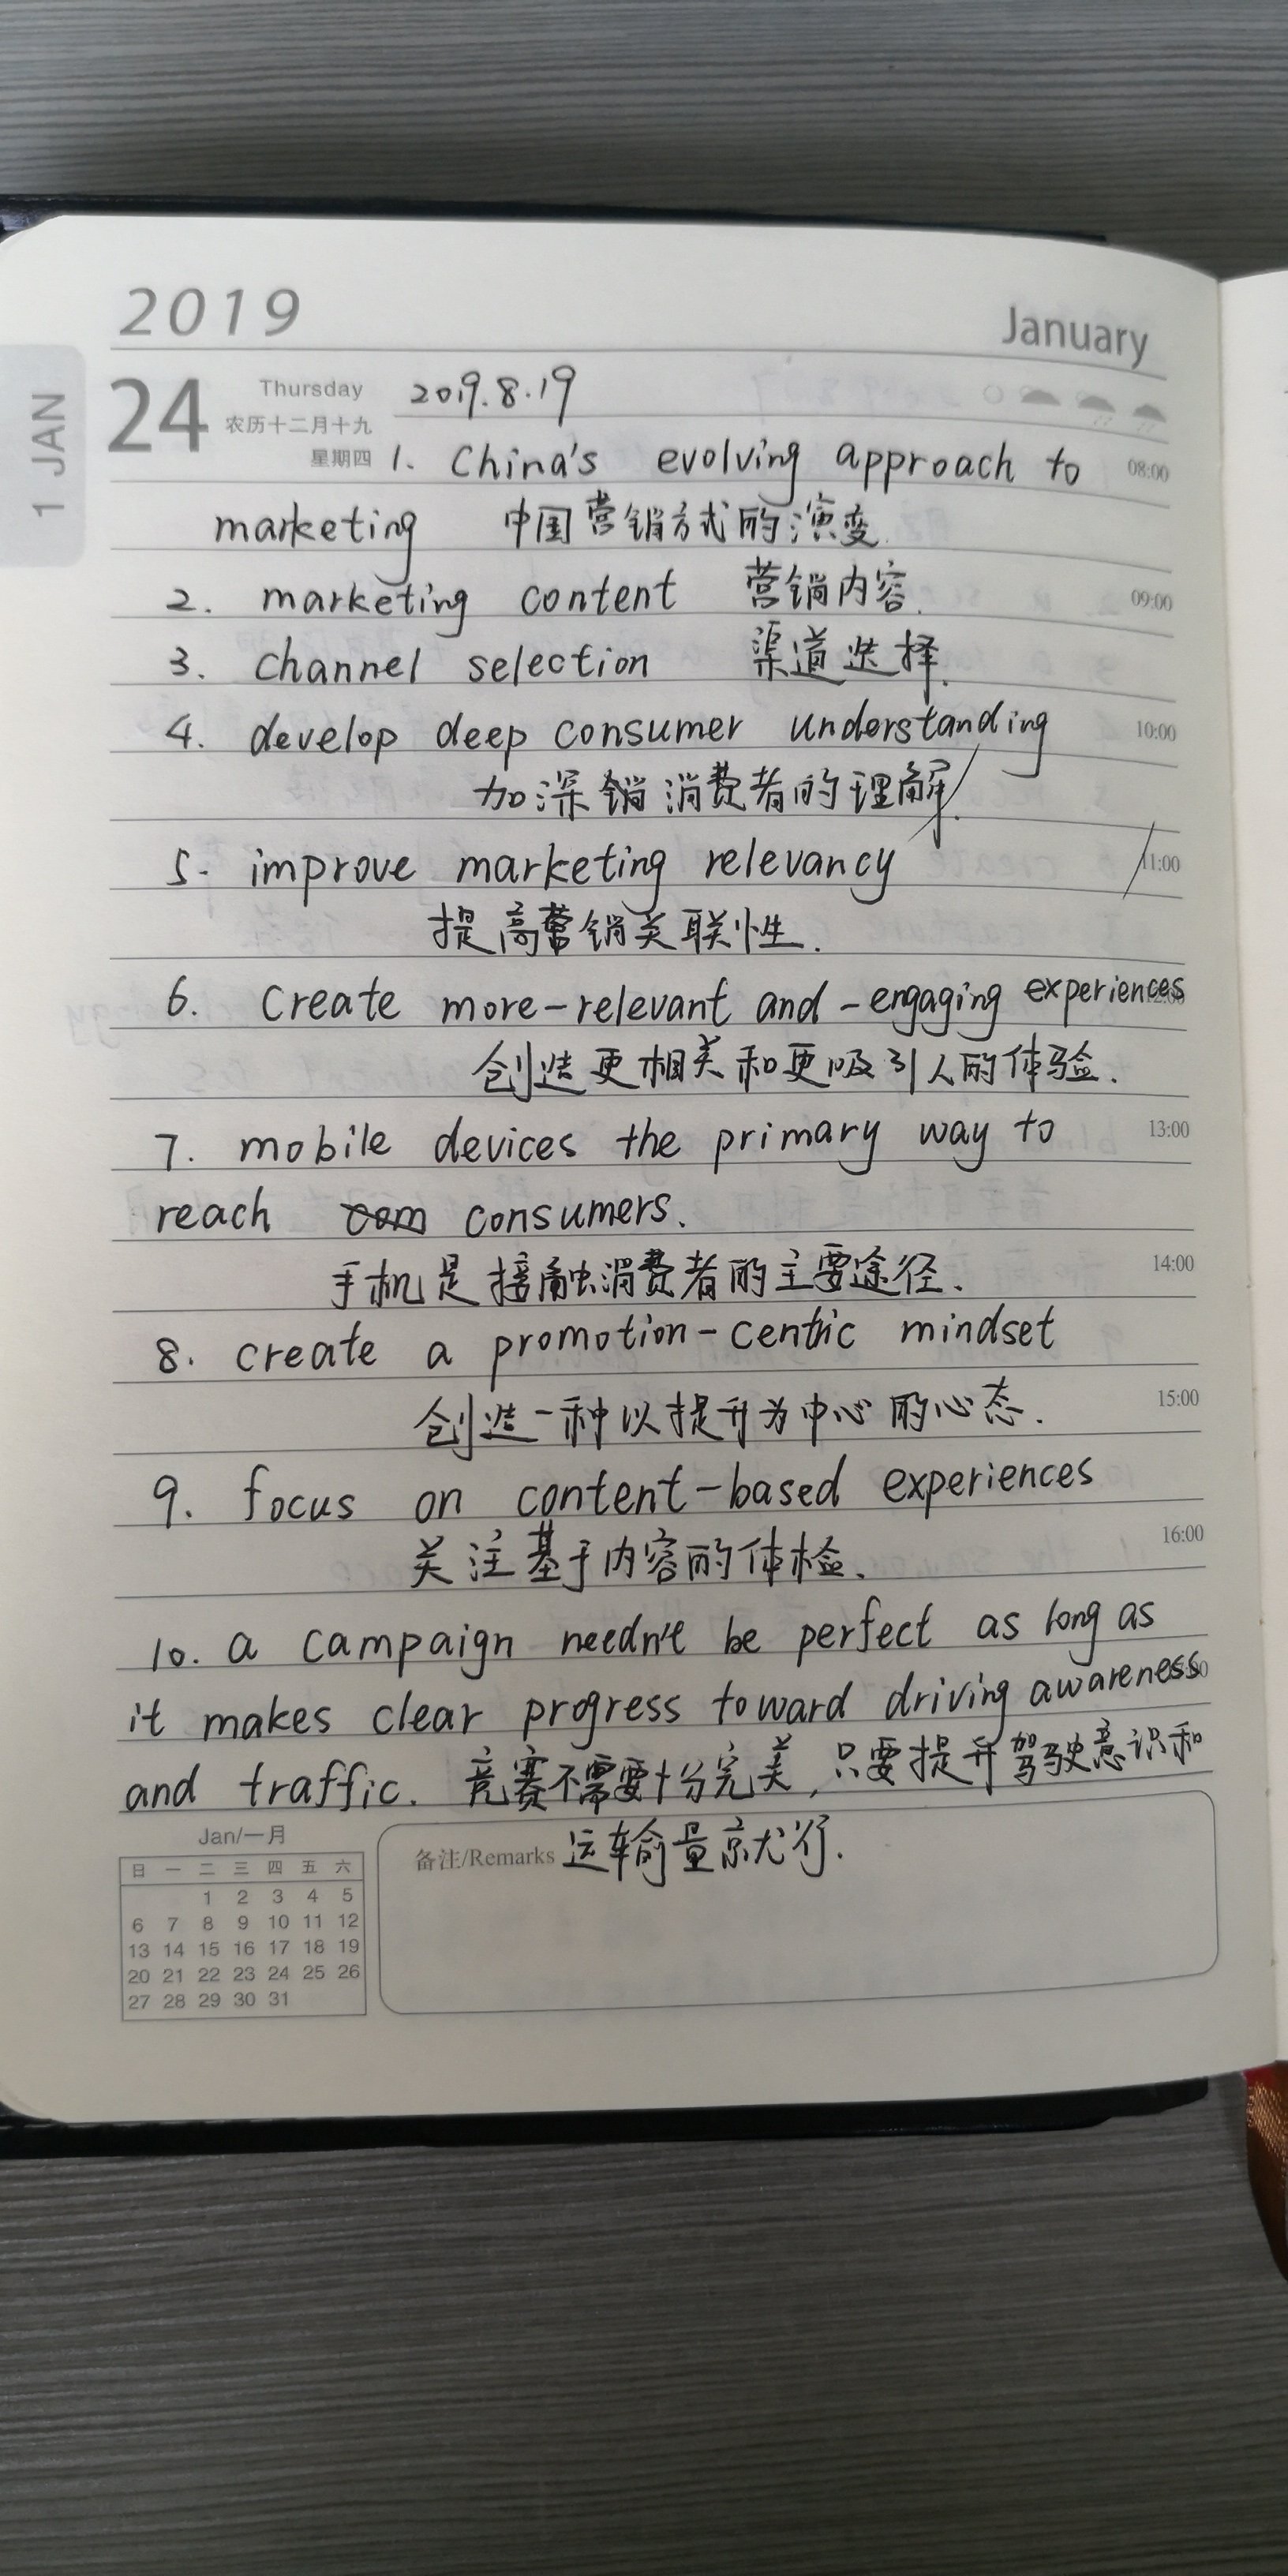 2019
January
1 JAN
24 Thursday 2019.8.19
农历十二月十九
星期四 1. China's evolving approach to 08:00
marketing 中国营销方式的演变.
2. marketing content 营销内容. 09:00
3. channel selection 渠道选择.
4. develop deep consumer understanding 10:00
加深销消费者的理解.
5. improve marketing relevancy 11:00
提高营销关联性.
6. Create more-relevant and -engaging experiences
创造更相关和更吸引人的体验.
7. mobile devices the primary way to 13:00
reach com consumers.
手机是接触消费者的主要途径. 14:00
8. create a promotion-centric mindset
创造一种以提升为中心的心态. 15:00
9. focus on content-based experiences
关注基于内容的体检. 16:00
10. a campaign needn't be perfect as long as
it makes clear progress toward driving awareness
and traffic. 竞赛不需要十分完美,只要提升驾驶意识和
备注/Remarks 运输量就行.
Jan/一月
日 一 二 三 四 五 六
1 2 3 4 5
6 7 8 9 10 11 12
13 14 15 16 17 18 19
20 21 22 23 24 25 26
27 28 29 30 31